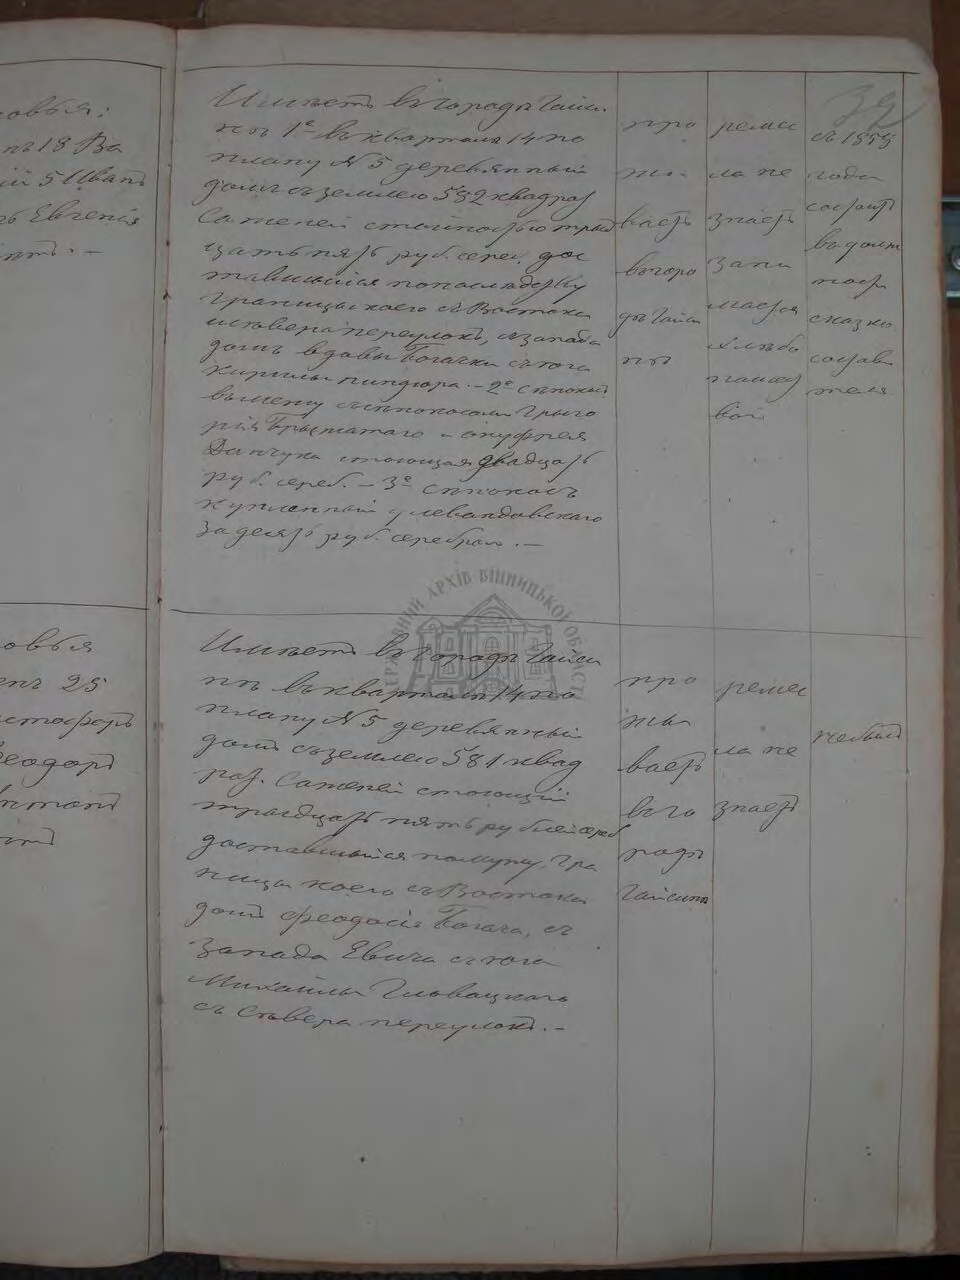 32
овья;
нъ 18 Ва
ій 5 Иванъ
ъ Евгенія
Имѣетъ въ городѣ Гайси
нѣ 1е въ кварталѣ 14 по
плану № 5 деревянный
домъ съ землею 582 квадрат
саженей стоимостью трид
цать пять руб. сереб. дос
тавшійся по наслѣдству
границы коего съ Востока
и сѣвера переулокъ, съ запада
домъ вдовы Богачки съ юга
Кирилы Пиндюра. – 2е сѣнокосъ
вымену съ сѣнокосами Григо
рія и Онуфрея
Данчука стоющая двадцать
руб. сереб. – 3е сѣнокосъ
купленный у Левандовскаго
за десять руб. серебромъ. –
про
жи
ваетъ
въ горо
дѣ Гайси
нѣ
ремес
ла не
знаетъ
зани
мается
хлѣбо
пашест
вомъ
съ 1855
года
состоитъ
въ долж
ности
сказко
состави
теля
ДЕРЖАВНИЙ АРХІВ ВІННИЦЬКОЇ ОБЛАСТІ
овья
енъ 25
истофоръ
Ѳеодоръ
Антонъ
Имѣетъ въ городѣ Гайси
нѣ въ кварталѣ 14 по
плану № 5 деревянный
домъ съ землею 581 квад
рат. саженей стоющій
тридцать пять рублей сереб
доставшійся по мужу, гра
ницы коего съ Востока
домъ Феодосія Богача, съ
Запада Евича съ юга
Михайлы Гловацкаго
съ Сѣвера переулокъ. –
про
жи
ваетъ
въ го
родѣ
Гайсинѣ
ремес
ла не
знаетъ
не былъ